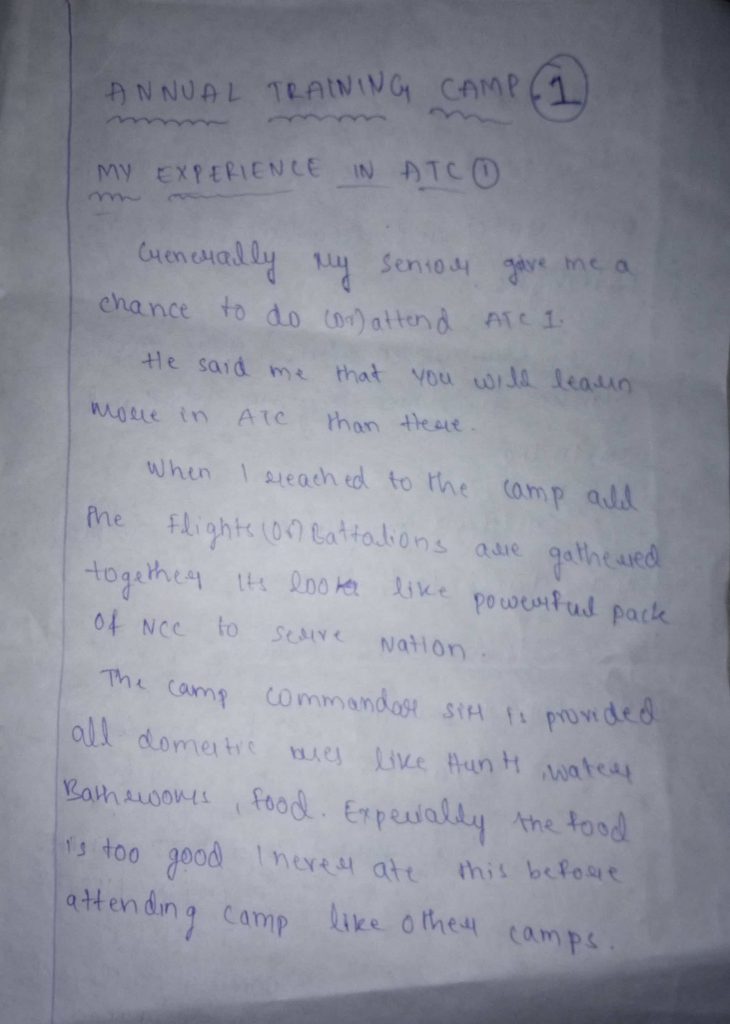 ANNUAL TRAINING CAMP 1
MY EXPERIENCE IN ATC 1
Generally my senior gave me a
chance to do (or) attend ATC 1.
He said me that you will learn
more in ATC than there.
When I reached to the camp all
the flights (or) Battalions are gathered
together its look like powerful pack
of NCC to serve Nation.
The camp commandor sir is provided
all domestic like , water
Bathrooms , food. Expecially the food
is too good I never ate this before
attending camp like other camps.